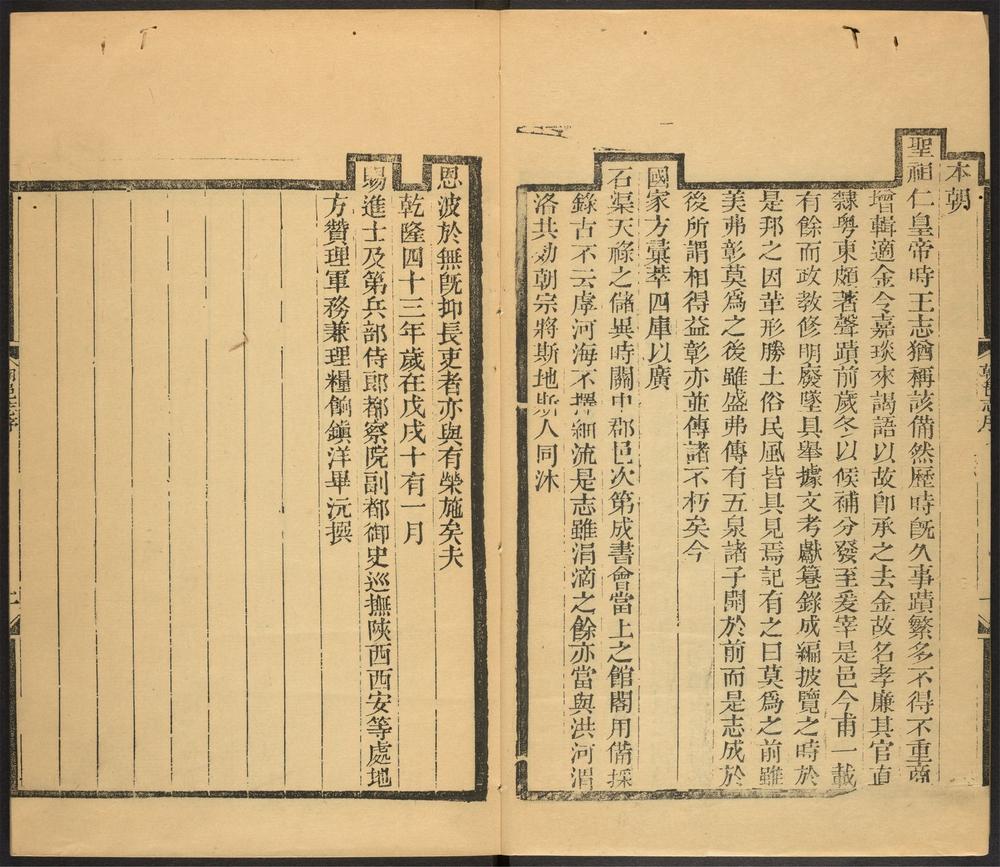 本朝
聖祖仁皇帝時王志猶稱該備然歷時旣久事蹟繁多不得不重商
增輯適金令嘉琰來謁語以故卽承之去金故名孝廉其官直
隸粵東頗著聲蹟前歲冬以候補分發至爰宰是邑今甫一載
有餘而政教修明廢墜具舉據文考獻篹錄成編披覽之時於
是邦之因革形勝土俗民風皆具見焉記有之曰莫爲之前雖
美弗彰莫爲之後雖盛弗傳有五泉諸子開於前而是志成於
後所謂相得益彰亦並傳諸不朽矣今
國家方彚萃四庫以廣
石渠天祿之儲異時關中郡邑次第成書會當上之館閣用備採
錄古不云虖河海不擇細流是志雖涓滴之餘亦當與洪河渭
洛共効朝宗將斯地斯人同沐
朝邑志序
恩波於無旣抑長吏者亦與有榮施矣夫
乾隆四十三年歲在戊戌十有一月
賜進士及第兵部侍郎都察院副都御史巡撫陝西西安等處地
方贊理軍務兼理糧餉鎭洋畢沅撰
朝邑志序